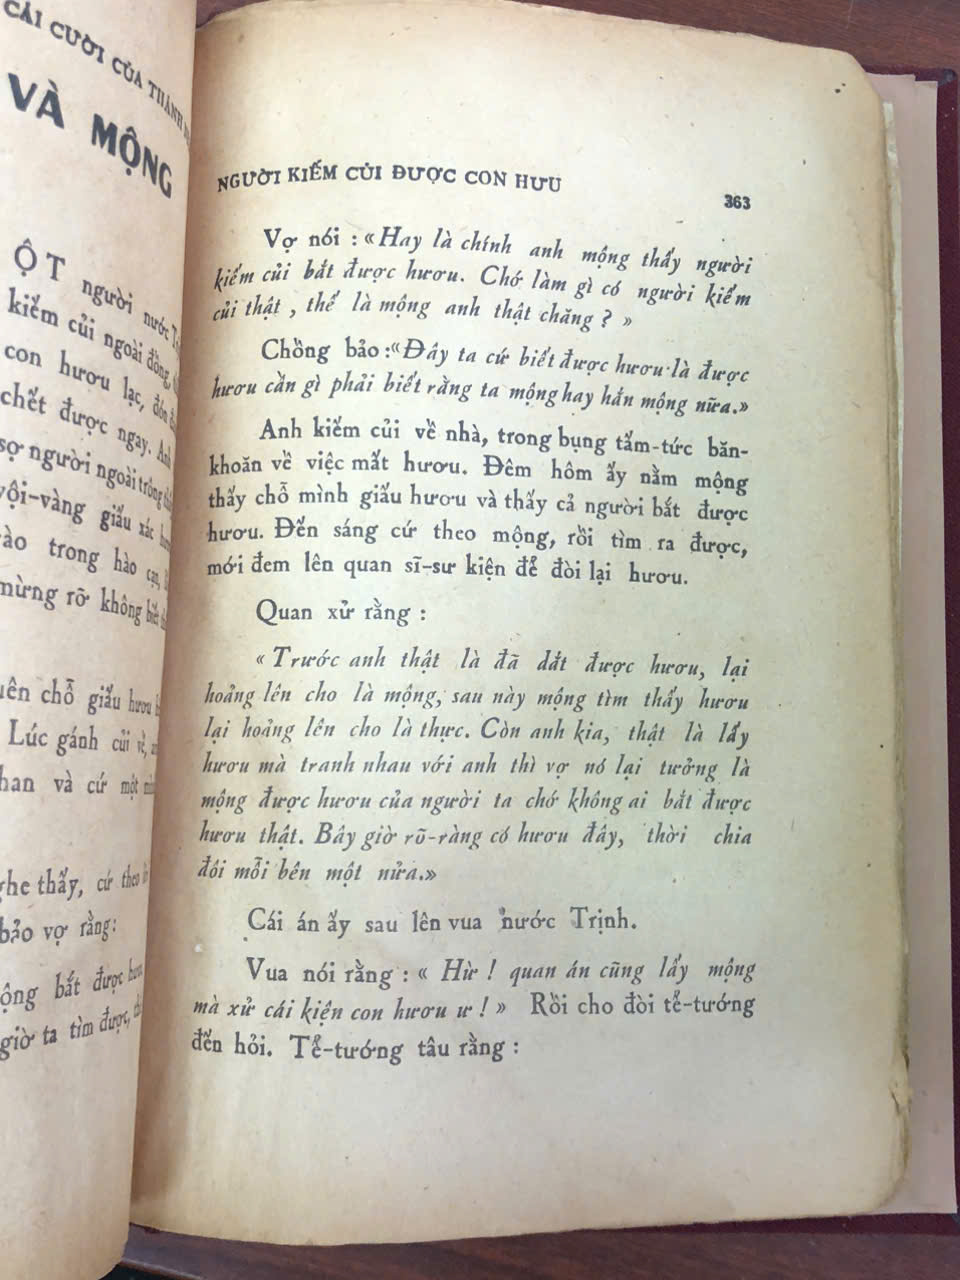 CÁI CƯỜI CỦA THÁNH
VÀ MỘNG
ỘT người nước
kiếm củi ngoài đồng,
con hươu lạc, đón
chết được ngay. Anh
sợ người ngoài trông
vội-vàng giấu xác
vào trong hào cạn,
mừng rỡ không biết
chỗ giấu hươu
Lúc gánh củi về,
và cứ một
nghe thấy, cứ theo
bảo vợ rằng:
mộng bắt được hươu
giờ ta tìm được,
NGƯỜI KIẾM CỦI ĐƯỢC CON HƯU
363
Vợ nói : « Hay là chính anh mộng thấy người
kiếm củi bắt được hươu. Chớ làm gì có người kiếm
củi thật , thế là mộng anh thật chăng ? »
Chồng bảo :« Đây ta cứ biết được hươu là được
hươu cần gì phải biết rằng ta mộng hay hắn mộng nữa.»
Anh kiếm củi về nhà, trong bụng tấm-tức băn-
khoăn về việc mất hươu. Đêm hôm ấy nằm mộng
thấy chỗ mình giấu hươu và thấy cả người bắt được
hươu. Đến sáng cứ theo mộng, rồi tìm ra được,
mới đem lên quan sĩ-sư kiện để đòi lại hươu.
Quan xử rằng :
« Trước anh thật là đã dắt được hươu, lại
hoảng lên cho là mộng, sau này mộng tìm thấy hươu
lại hoảng lên cho là thực. Còn anh kia, thật là lấy
hươu mà tranh nhau với anh thì vợ nó lại tưởng là
mộng được hươu của người ta chớ không ai bắt được
hươu thật. Bây giờ rõ-ràng có hươu đây, thời chia
đôi mỗi bên một nửa.»
Cái án ấy sau lên vua nước Trịnh.
Vua nói rằng : « Hừ ! quan án cũng lấy mộng
mà xử cái kiện con hươu ư ! » Rồi cho đòi tể-tướng
đến hỏi. Tể-tướng tâu rằng :